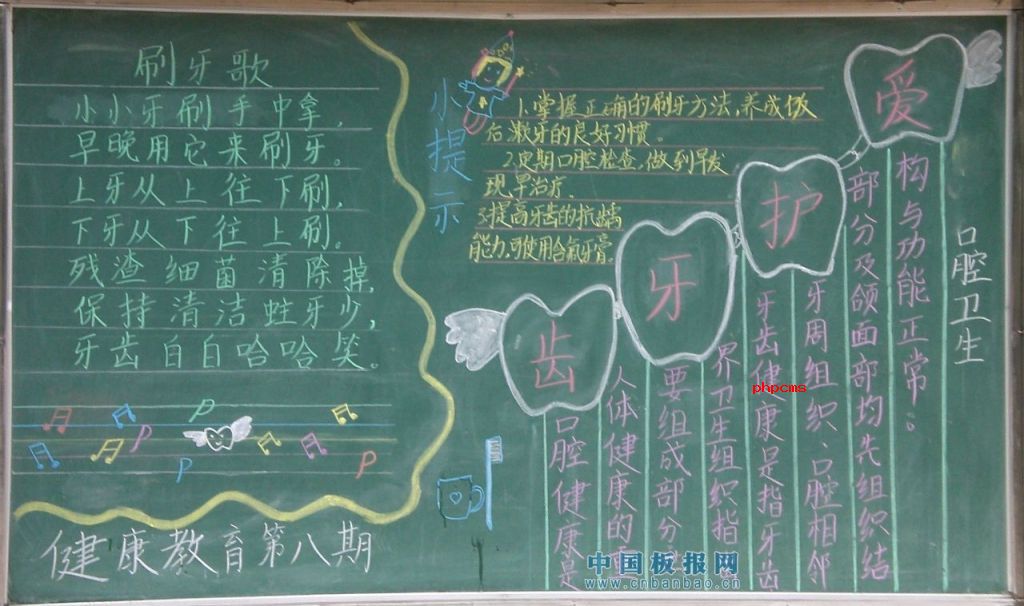 刷牙歌
小小牙刷手中拿，
早晚用它来刷牙。
上牙从上往下刷，
下牙从下往上刷。
残渣细菌清除掉，
保持清洁蛀牙少，
牙齿白白哈哈笑。
健康教育第八期
小提示
1.掌握正确的刷牙方法，养成饭
后漱牙的良好习惯。
2.定期口腔检查，做到早发
现，早治疗。
3.提高牙齿的抗龋
能力，可使用含氟牙膏。
爱
护
牙
齿
口腔卫生
口腔健康是
人体健康的
要组成部分
界卫生组织指
牙齿健康是指牙齿
牙周组织、口腔相邻
部分及颌面部均先组织结
构与功能正常。
phpcms
中国板报网
www.cnbanbao.cn